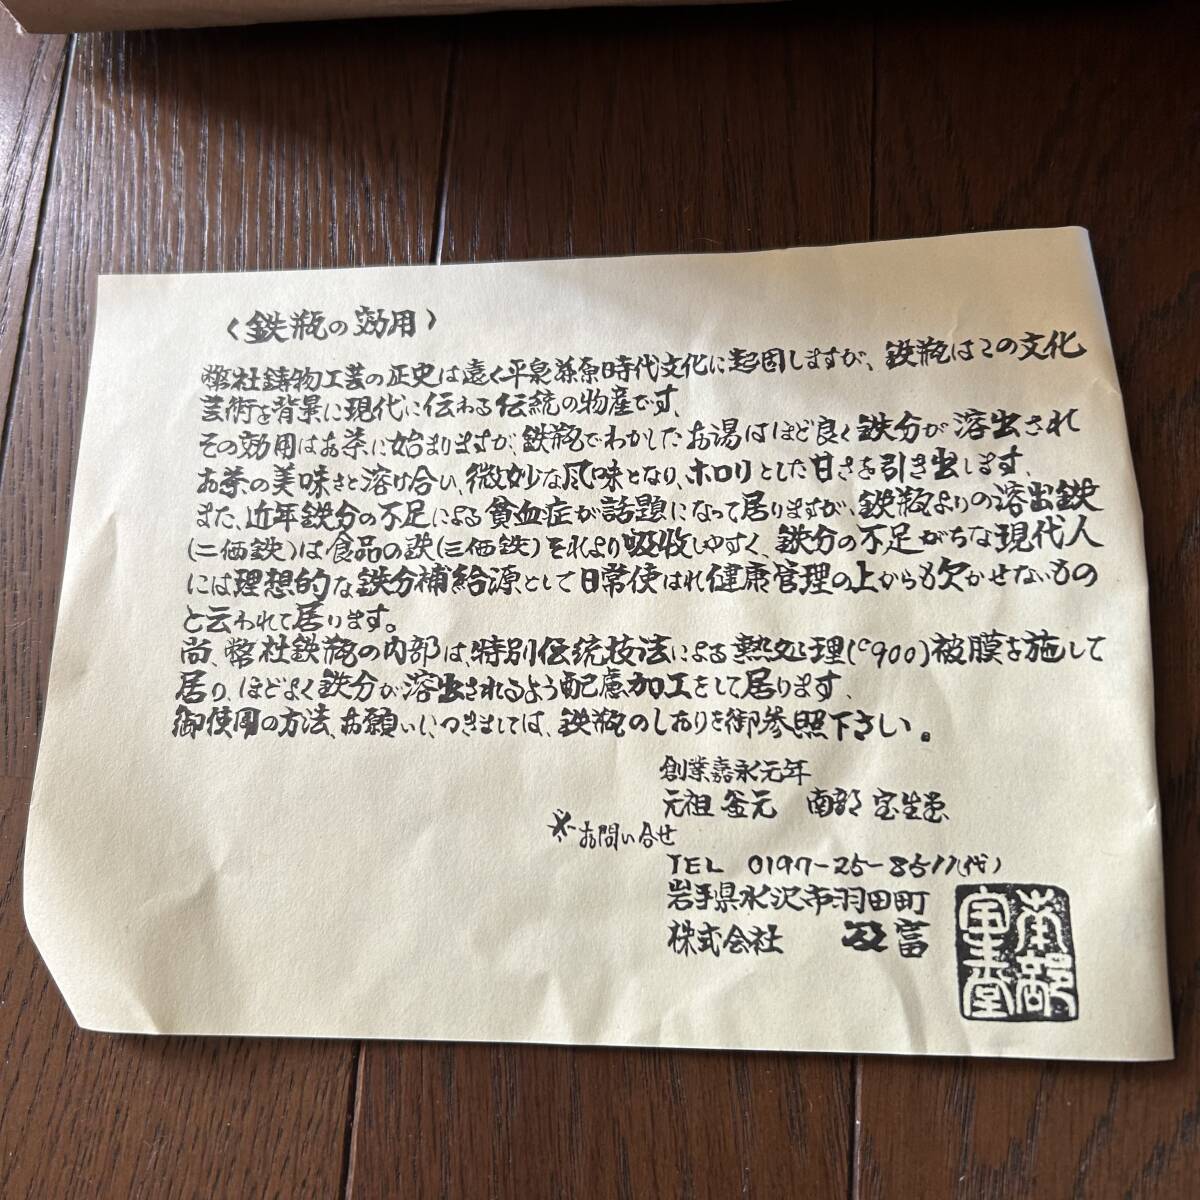 〈鉄瓶の効用〉
弊社鋳物工芸の歴史は遠く平泉藤原時代文化に起因しますが、鉄瓶はこの文化
芸術を背景に現代に伝わる伝統の物産です、
その効用はお茶に始まりますが、鉄瓶でわかしたお湯はほど良く鉄分が溶出され
お茶の美味さと溶け合い、微妙な風味となり、ホロリとした甘さを引き出します、
また、近年鉄分の不足による貧血症が話題になって居りますが、鉄瓶よりの溶出鉄
(二価鉄)は食品の鉄(三価鉄)それより吸収しやすく、鉄分の不足がちな現代人
には理想的な鉄分補給源として日常使はれ健康管理の上からも欠かせないもの
と云われて居ります。
尚、弊社鉄瓶の内部は、特別伝統技法による熱処理(℃900)被膜を施して
居り、ほどよく鉄分が溶出されるよう配慮加工をして居ります、
御使用の方法、お願いにつきましては、鉄瓶のしおりを御参照下さい。
創業嘉永元年
元祖 釜元 南部 宝生堂
*お問い合せ
TEL 0197-25-8511(代)
岩手県水沢市羽田町
株式会社 及富
南部
宝生堂